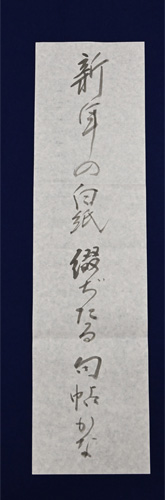 新年の白紙綴ぢたる句帖かな